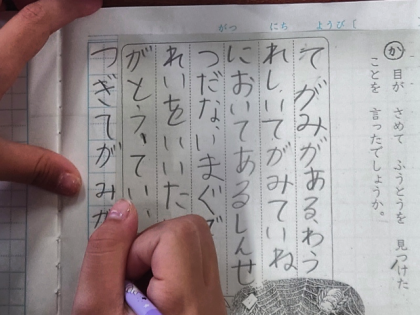 がつ にち ようび
か 目が さめて ふうとうを 見つけた
ことを 言ったでしょうか。
てがみがある、わう
れしいてがみていね
においてあるしんせ
つだな、いまぐ
れいをいいた
がとう、てい
つぎてがみ